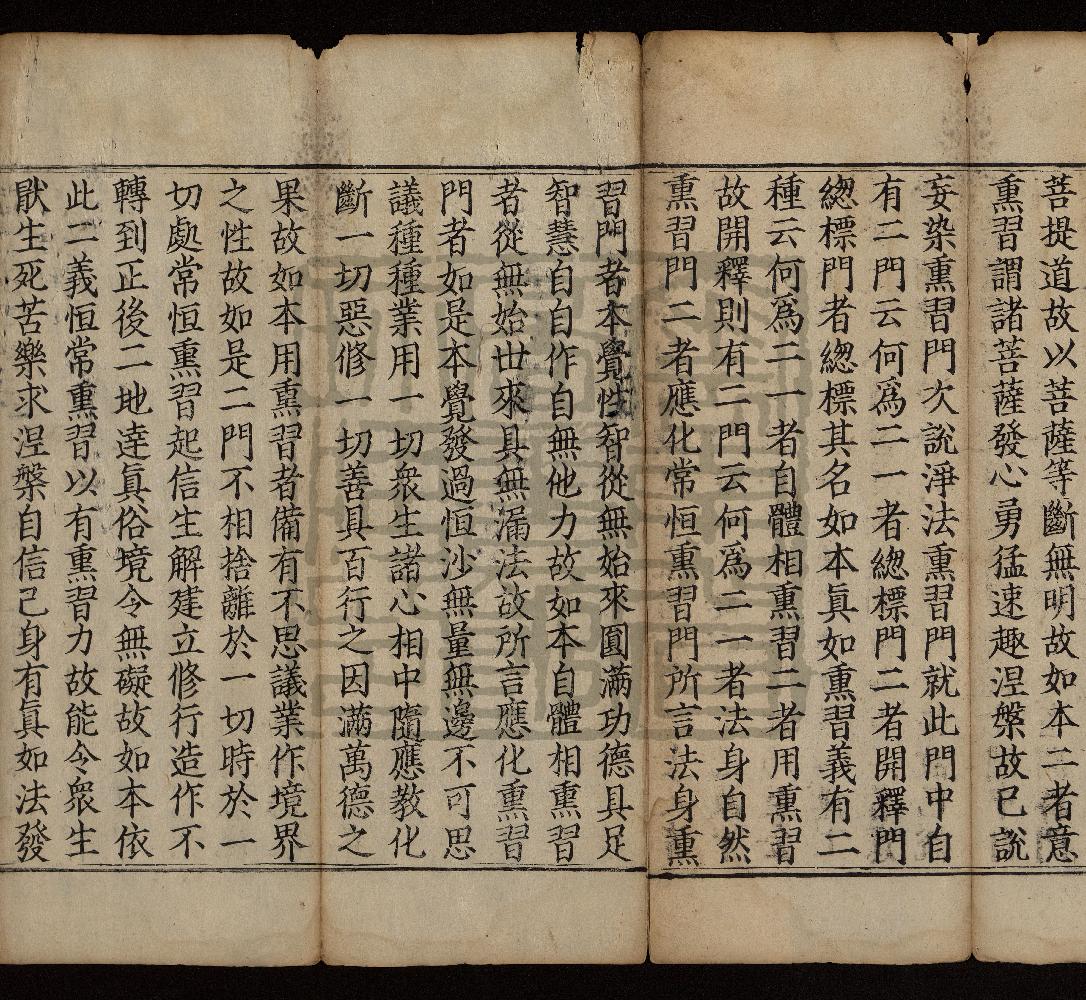 菩提道故以菩薩等斷無明故如本二者意
熏習謂諸菩薩發心勇猛速趣涅槃故已說
妄染熏習門次說淨法熏習門就此門中自
有二門云何爲二一者緫標門二者開釋門
緫標門者緫標其名如本眞如熏習義有二
種云何爲二一者自體相熏習二者用熏習
故開釋則有二門云何爲二一者法身自然
熏習門二者應化常恒熏習門所言法身熏
習門者本覺性智從無始來圓滿功德具足
智慧自自作自無他力故如本自體相熏習
者從無始世來具無漏法故所言應化熏習
門者如是本覺發過恒沙無量無邊不可思
議種種業用一切衆生諸心相中隨應教化
斷一切惡修一切善具百行之因滿萬德之
果故如本用熏習者備有不思議業作境界
之性故如是二門不相捨離於一切時於一
切處常恒熏習起信生解建立修行造作不
轉到正後二地達眞俗境令無礙故如本依
此二義恒常熏習以有熏習力故能令衆生
猒生死苦樂求涅槃自信己身有眞如法發